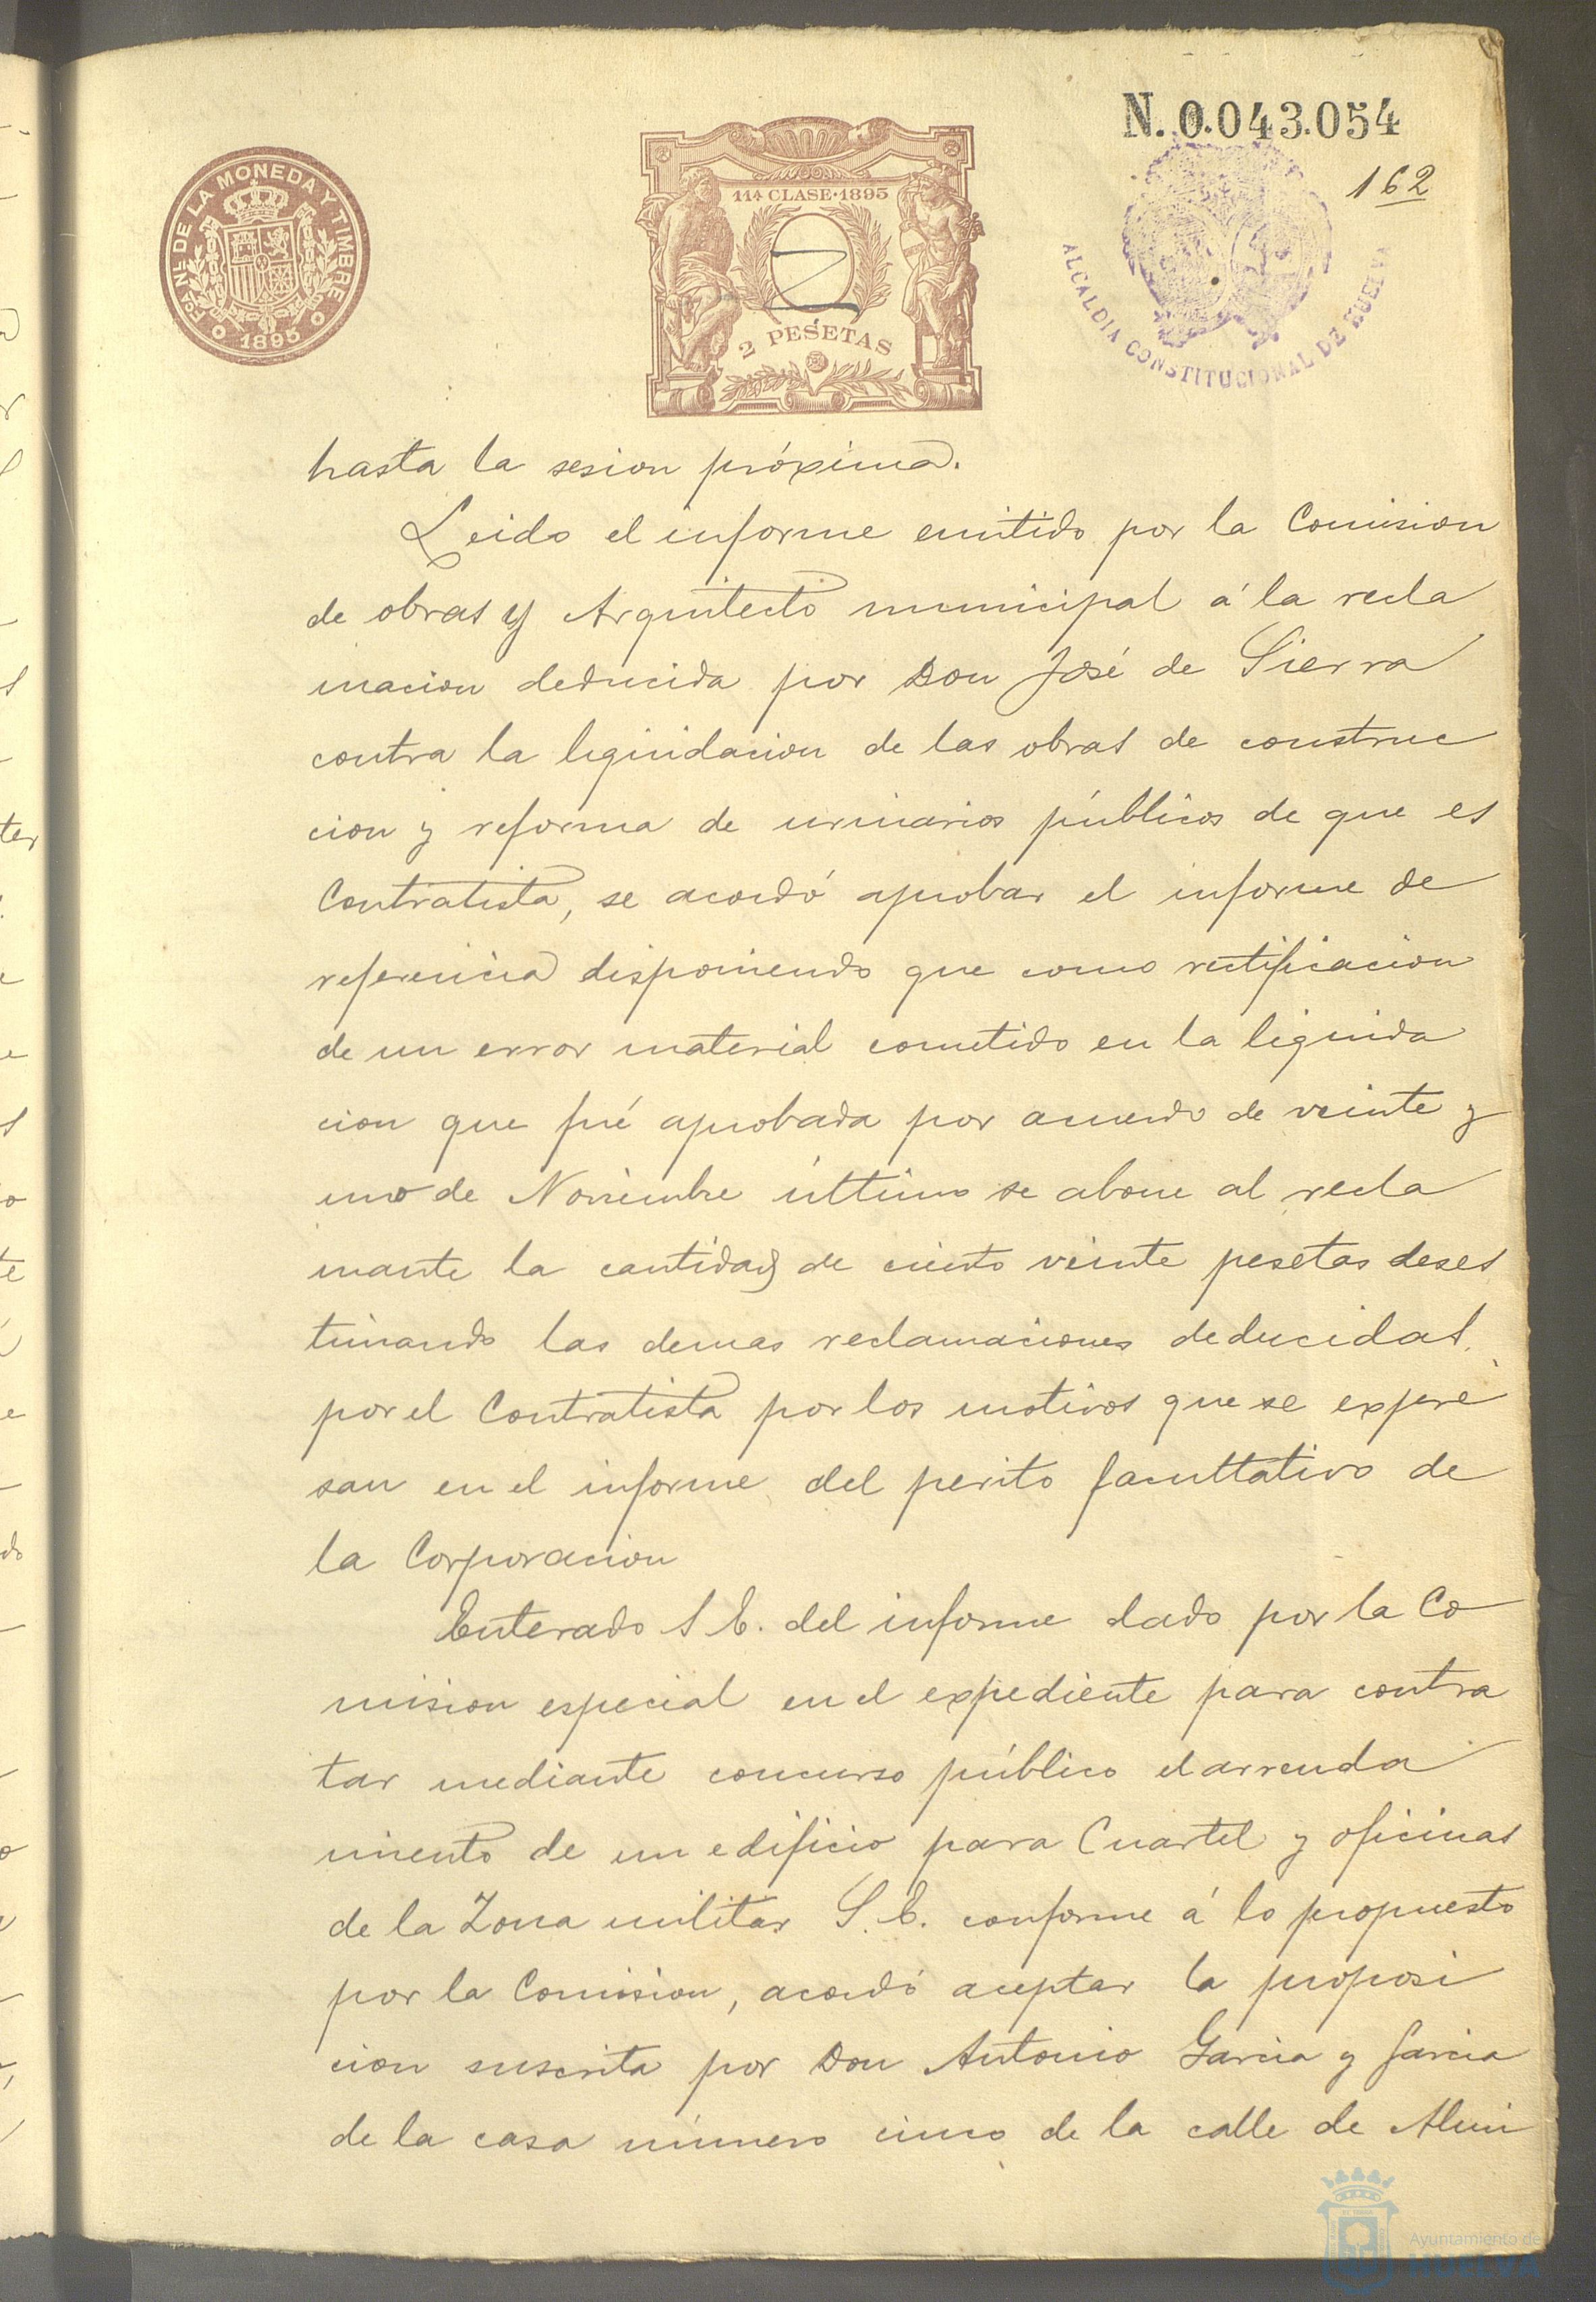 N. 0.043.054
162
FCA. NL. DE LA MONEDA Y TIMBRE
1895
11ª CLASE·1895
2 PESETAS
ALCALDIA CONSTITUCIONAL DE HUELVA
hasta la sesion próxima.
Leido el informe emitido por la Comision
de obras y Arquitecto municipal á la recla
macion deducida por Don José de Sierra
contra la liquidacion de las obras de construc
cion y reforma de urinarios públicos de que es
Contratista, se acordó aprobar el informe de
referencia disponiendo que como rectificacion
de un error material cometido en la liquida
cion que fué aprobada por acuerdo de veinte y
uno de Noviembre último se abone al recla
mante la cantidad de ciento veinte pesetas deses
timando las demas reclamaciones deducidas
por el Contratista por los motivos que se expre
san en el informe del perito facultativo de
la Corporacion
Enterado S E. del informe dado por la Co
mision especial en el expediente para contra
tar mediante concurso público el arrenda
miento de un edificio para Cuartel y oficinas
de la Zona militar S. E. conforme á lo propuesto
por la Comision, acordó aceptar la proposi
cion suscrita por Don Antonio Garcia y Garcia
de la casa número cinco de la calle de Almi
Ayuntamiento de
HUELVA